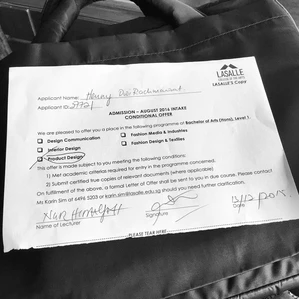 LASALLE
COLLEGE OF THE ARTS
LASALLE's Copy
Applicant Name: Henny
Applicant ID:
ADMISSION – AUGUST 2016 INTAKE
CONDITIONAL OFFER
We are pleased to offer you a place in the following programme of Bachelor of Arts (Hons), Level 1
Design Communication
Fashion Media & Industries
Interior Design
Fashion Design & Textiles
Product Design
This offer is made subject to you meeting the following conditions:
1) Met academic criteria required for entry in the programme concerned.
2) Submit certified true copies of relevant documents (where applicable)
On fulfilment of the above, a formal Letter of Offer shall be sent to you in due course. Please contact
Ms Karin Sim at 6496 5203 or karin.sim@lasalle.edu.sg should you need further clarification.
Name of Lecturer
Signature
Date
PLEASE TEAR HERE